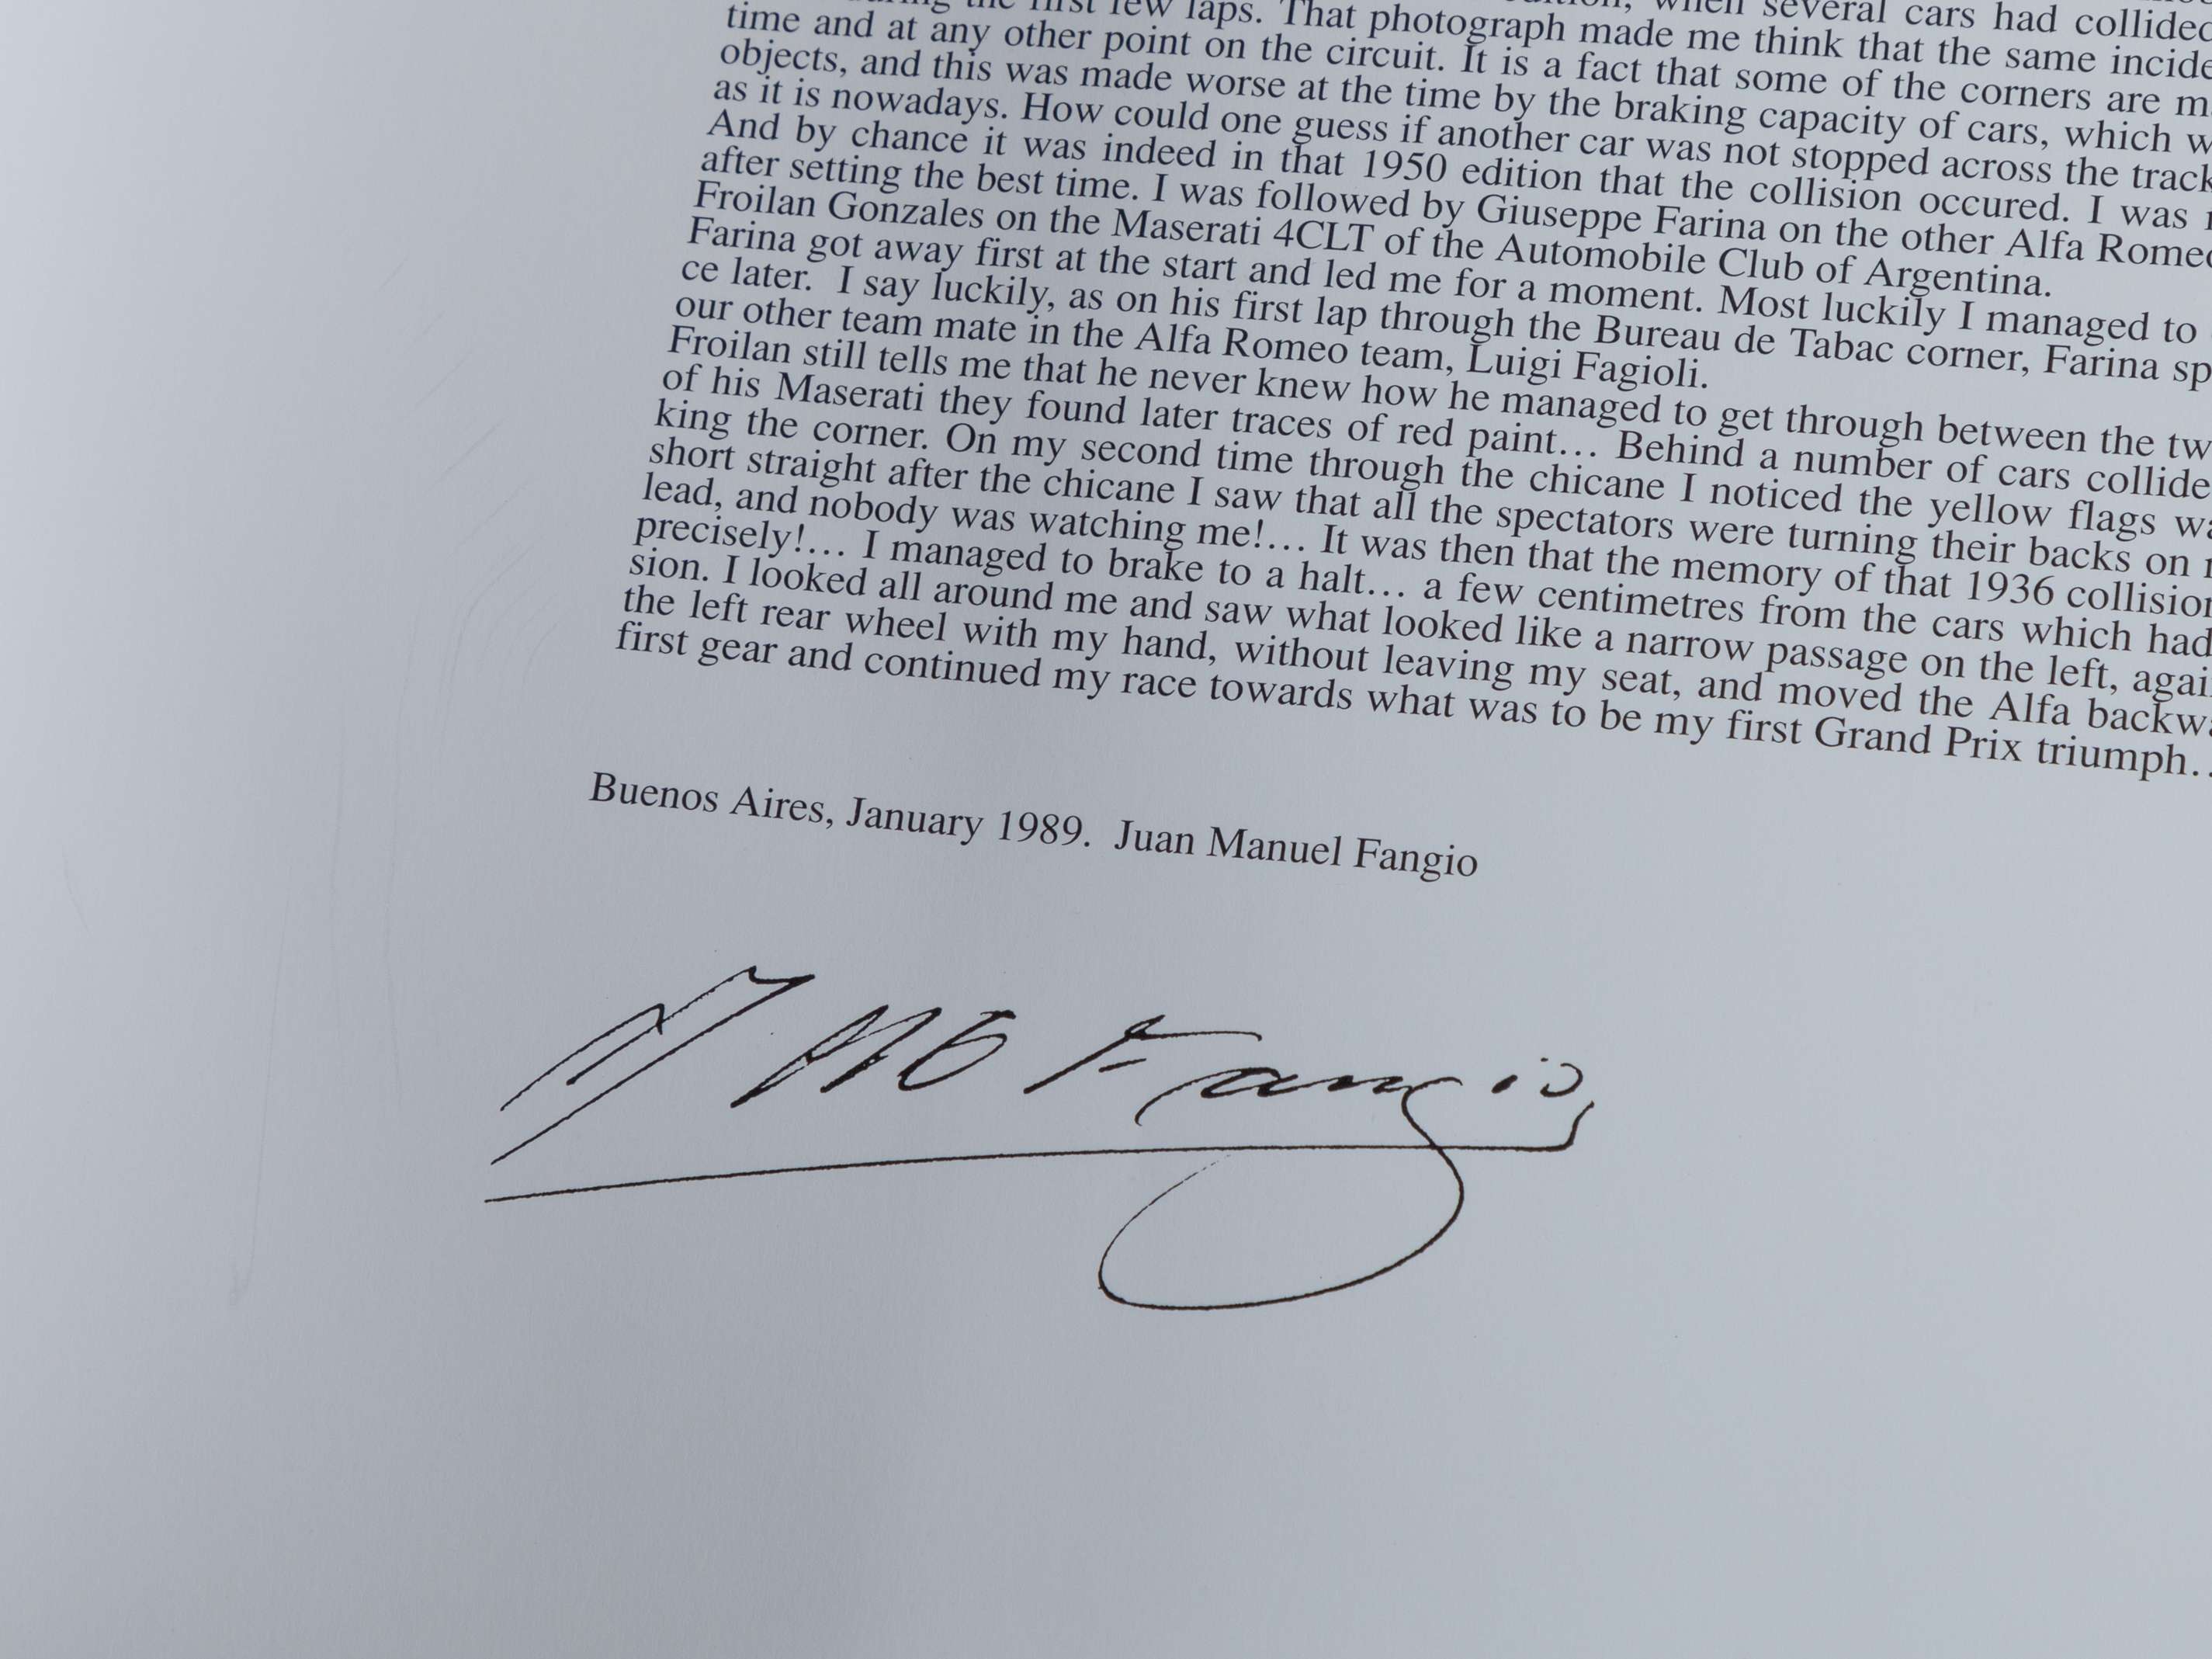 the first few laps. That photograph made me think that the same incide
when several cars had collided
time and at any other point on the circuit. It is a fact that some of the corners are m
objects, and this was made worse at the time by the braking capacity of cars, which w
as it is nowadays. How could one guess if another car was not stopped across the track
And by chance it was indeed in that 1950 edition that the collision occured. I was
after setting the best time. I was followed by Giuseppe Farina on the other Alfa Romeo
Froilan Gonzales on the Maserati 4CLT of the Automobile Club of Argentina.
Farina got away first at the start and led me for a moment. Most luckily I managed to
ce later. I say luckily, as on his first lap through the Bureau de Tabac corner, Farina sp
our other team mate in the Alfa Romeo team, Luigi Fagioli.
Froilan still tells me that he never knew how he managed to get through between the tw
of his Maserati they found later traces of red paint… Behind a number of cars collide
king the corner. On my second time through the chicane I noticed the yellow flags wa
short straight after the chicane I saw that all the spectators were turning their backs on
lead, and nobody was watching me!… It was then that the memory of that 1936 collision
precisely!… I managed to brake to a halt… a few centimetres from the cars which had
sion. I looked all around me and saw what looked like a narrow passage on the left, agai
the left rear wheel with my hand, without leaving my seat, and moved the Alfa backwa
first gear and continued my race towards what was to be my first Grand Prix triumph..
Buenos Aires, January 1989. Juan Manuel Fangio
Fangio